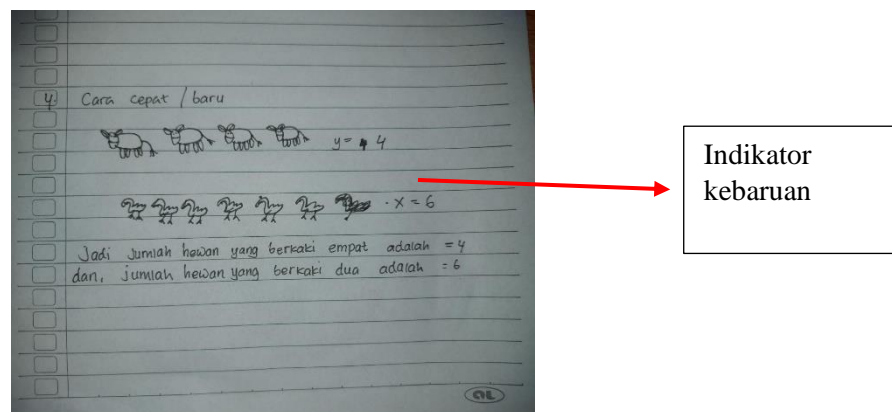 4. Cara cepat / baru
y = 4
x = 6
Jadi jumlah hewan yang berkaki empat adalah = 4
dan, jumlah hewan yang berkaki dua adalah = 6
OL
Indikator
kebaruan